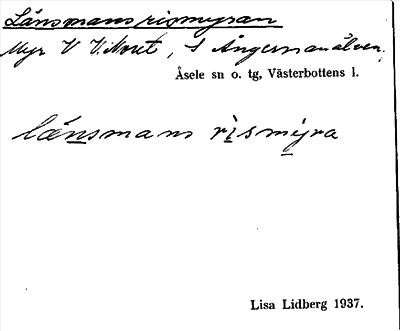 Länsmansrismyran
Myr V V. Noret, S Ångermanälven.
Åsele sn o. tg, Västerbottens l.
länsmans rismyra
Lisa Lidberg 1937.